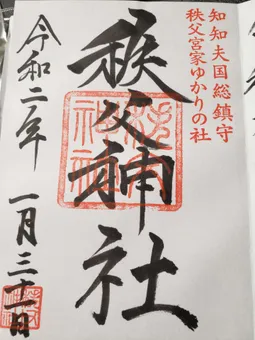 知知夫国総鎮守
秩父宮家ゆかりの社
秩父神社
令和二年 一月三十一日